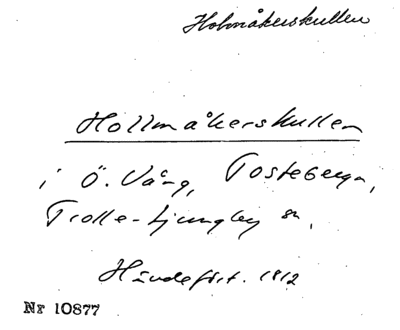 Holmåkerskullen
Hollmåkerskullen
i Ö. Vång, Tosteberga,
Trolle-Ljungby sn.
Händefört. 1812
Nr 10877